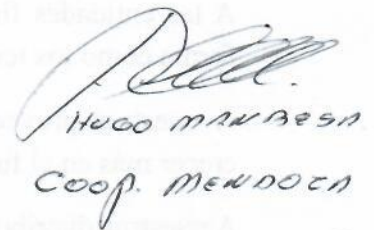 HUGO MANRESA
COOP. MENDOZA